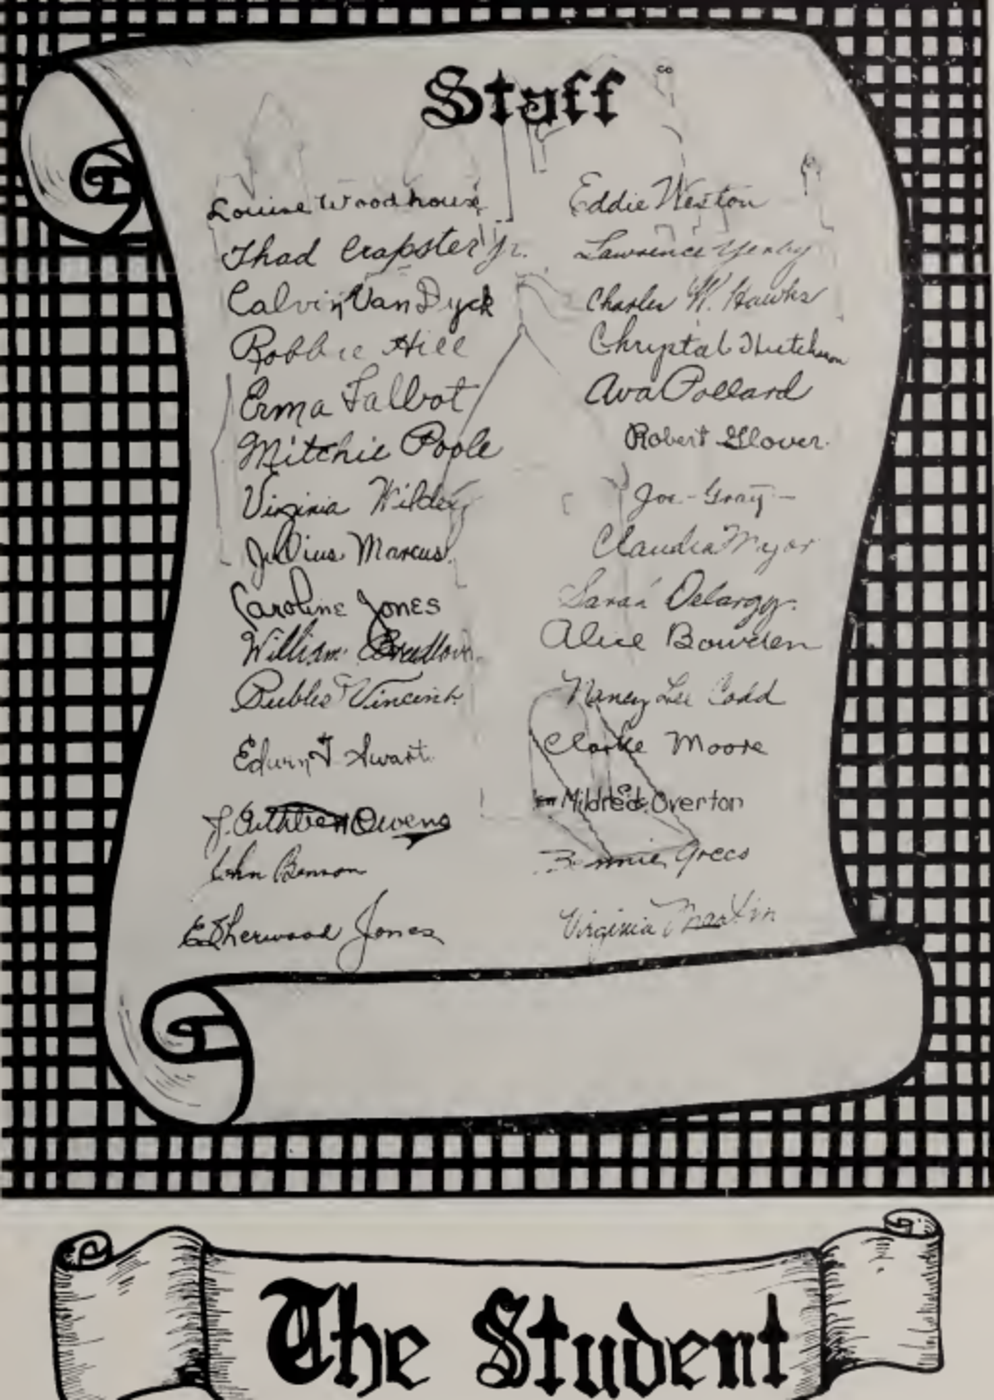 Staff
Louise Woodhouse
Thad Crapster Jr.
Calvin Van Dyck
Robbie Hill
Erma Talbot
Mitchie Poole
Virginia Wilder
Julius Marcus
Caroline Jones
William
Vincent
Edwin T Swart
J. Owens
John Benson
E. Sherwood Jones
Eddie Weston
Lawrence Yerby
Charles W. Hawks
Chryptal Hutchison
Ava Pollard
Robert Glover
Joe Gray
Claudia
Sara Delargy
Alice Bowden
Nancy Lee Codd
Clarke Moore
Mildred Overton
Virginia Martin
The Student